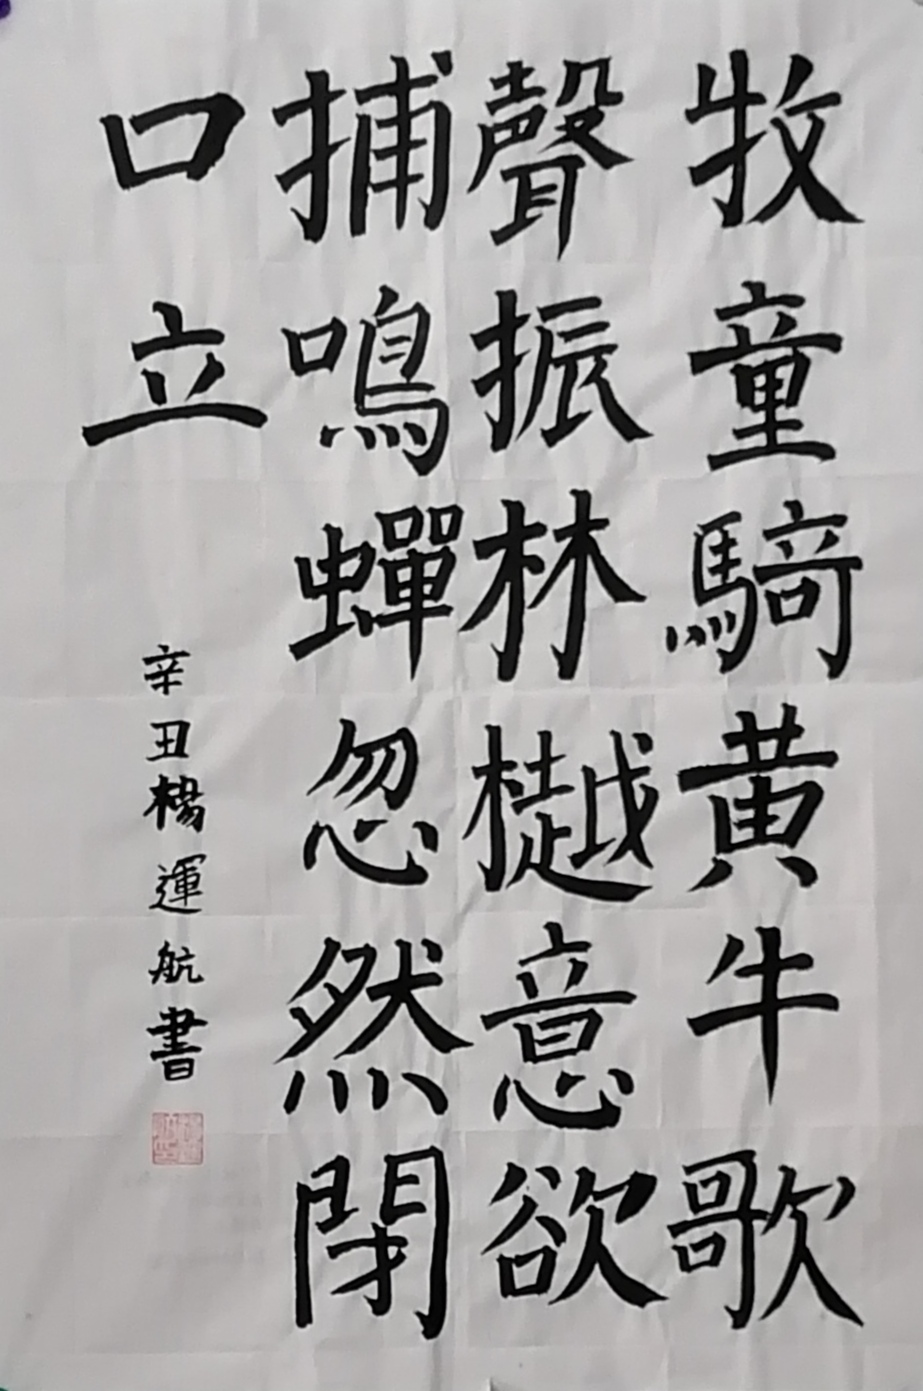 牧童騎黄牛歌
聲振林樾意欲
捕鳴蟬忽然閉
口立
辛丑楊運航書